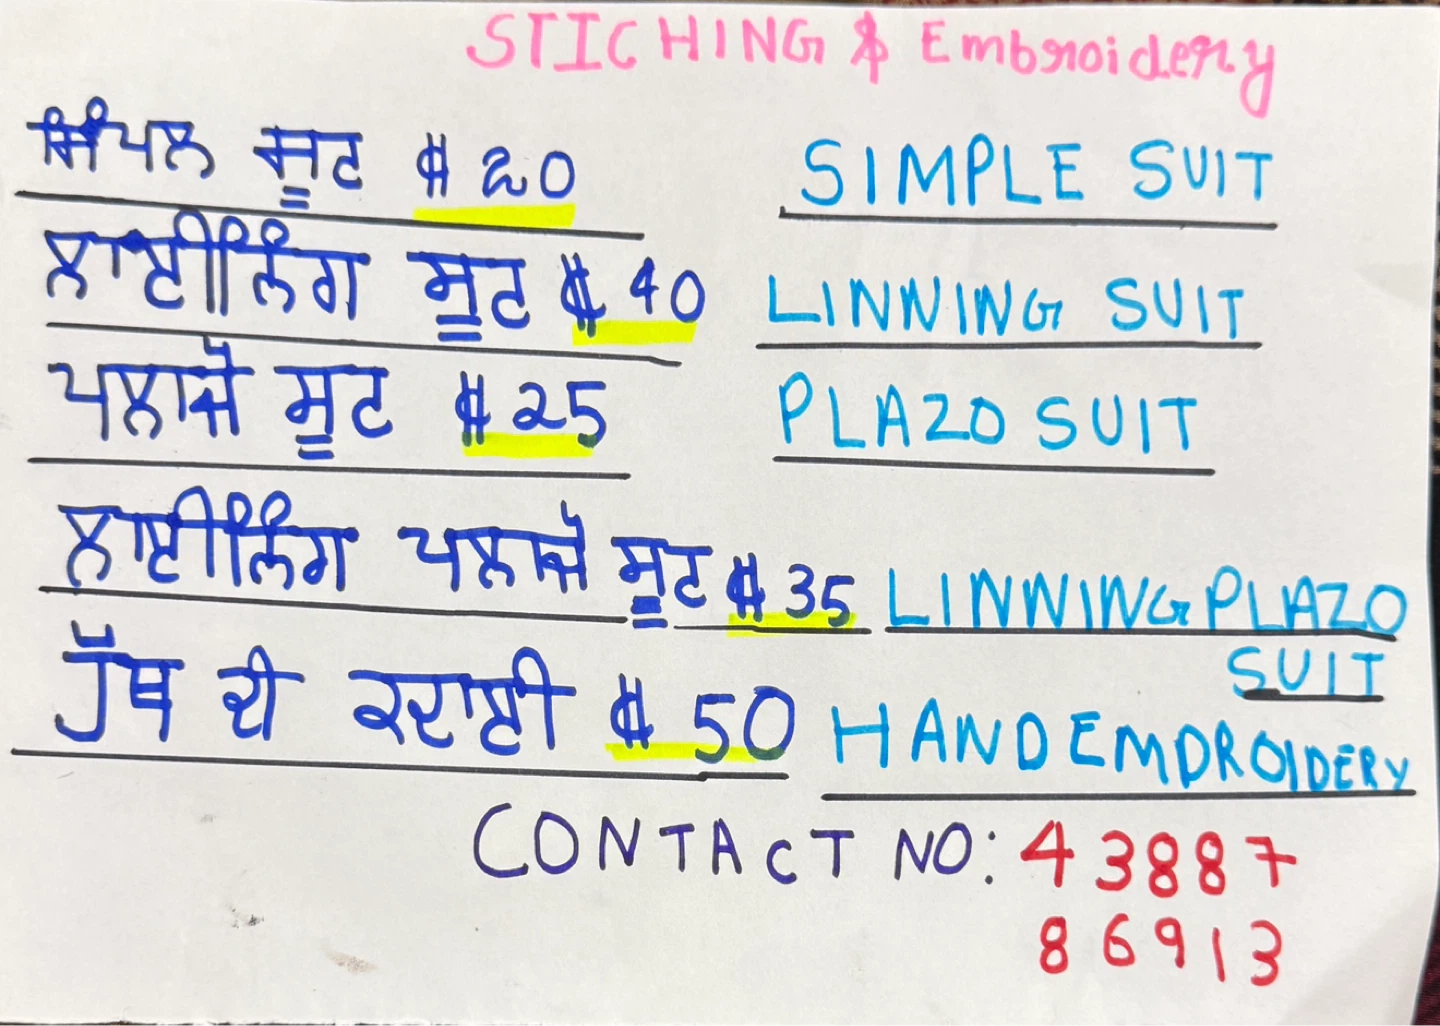 STICHING & Embroidery
ਸਿੰਪਲ ਸੂਟ $ 20 SIMPLE SUIT
ਲਾਈਲਿੰਗ ਸੂਟ $ 40 LINNING SUIT
ਪਲਾਜੋ ਸੂਟ $ 25 PLAZO SUIT
ਲਾਈਲਿੰਗ ਪਲਾਜੋ ਸੂਟ $ 35 LINNING PLAZO
SUIT
ਹੱਥ ਦੀ ਕਦਾਈ $ 50 HAND EMDROIDERY
CONTACT NO: 43887
86913